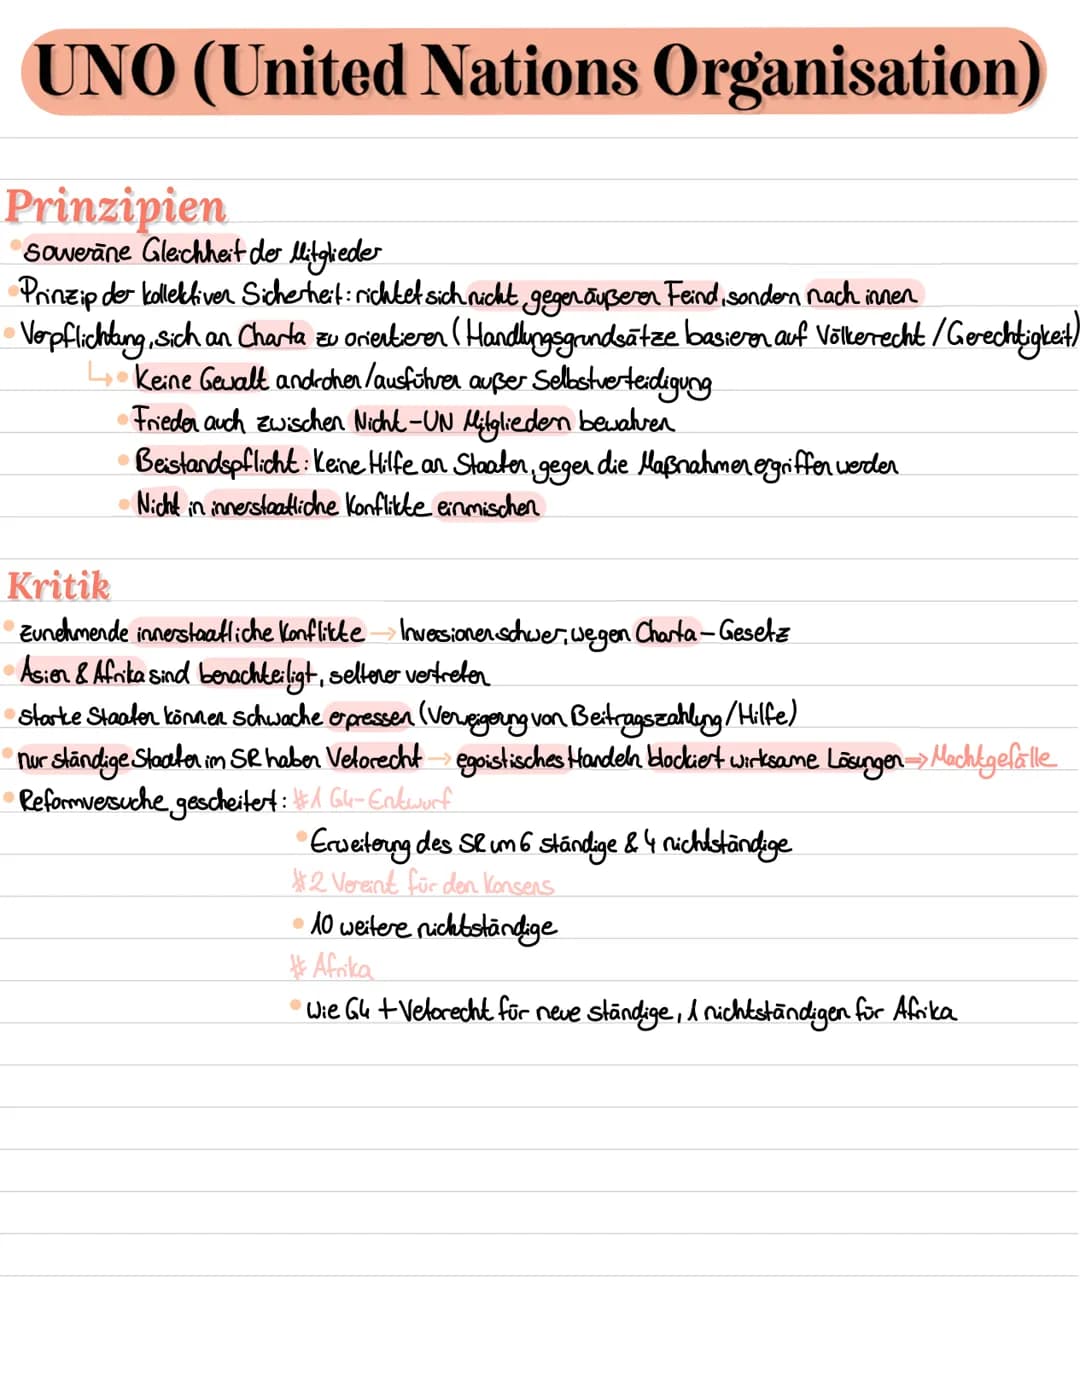 UNO (United Nations Organisation)
Prinzipien
• souveräne Gleichheit der Mitglieder
• Prinzip der kollektiven Sicherheit: richtet sich nicht gegen äußeren Feind, sondern nach innen
• Verpflichtung, sich an Charta zu orientieren (Handlungsgrundsätze basieren auf Völkerrecht / Gerechtigkeit)
↳ • Keine Gewalt androhen/ausführen außer Selbstverteidigung
• Frieden auch zwischen Nicht-UN Mitgliedern bewahren
• Beistandspflicht: Keine Hilfe an Staaten, gegen die Maßnahmen ergriffen werden
• Nicht in innerstaatliche Konflikte einmischen
Kritik
• Zunehmende innerstaatliche Konflikte → Invasionen schwer, wegen Charta-Gesetz
• Asien & Afrika sind benachteiligt, seltener vertreten
• starke Staaten können schwache erpressen (Verweigerung von Beitragszahlung/Hilfe)
• nur ständige Staaten im SR haben Vetorecht → egoistisches Handeln blockiert wirksame Lösungen ⇒ Machtgefälle
• Reformversuche gescheitert: #1 G4-Entwurf
• Erweiterung des SR um 6 ständige & 4 nichtständige
#2 Vereint für den Konsens
• 10 weitere nichtständige
# Afrika
• Wie G4 + Vetorecht für neue ständige, 1 nichtständigen für Afrika